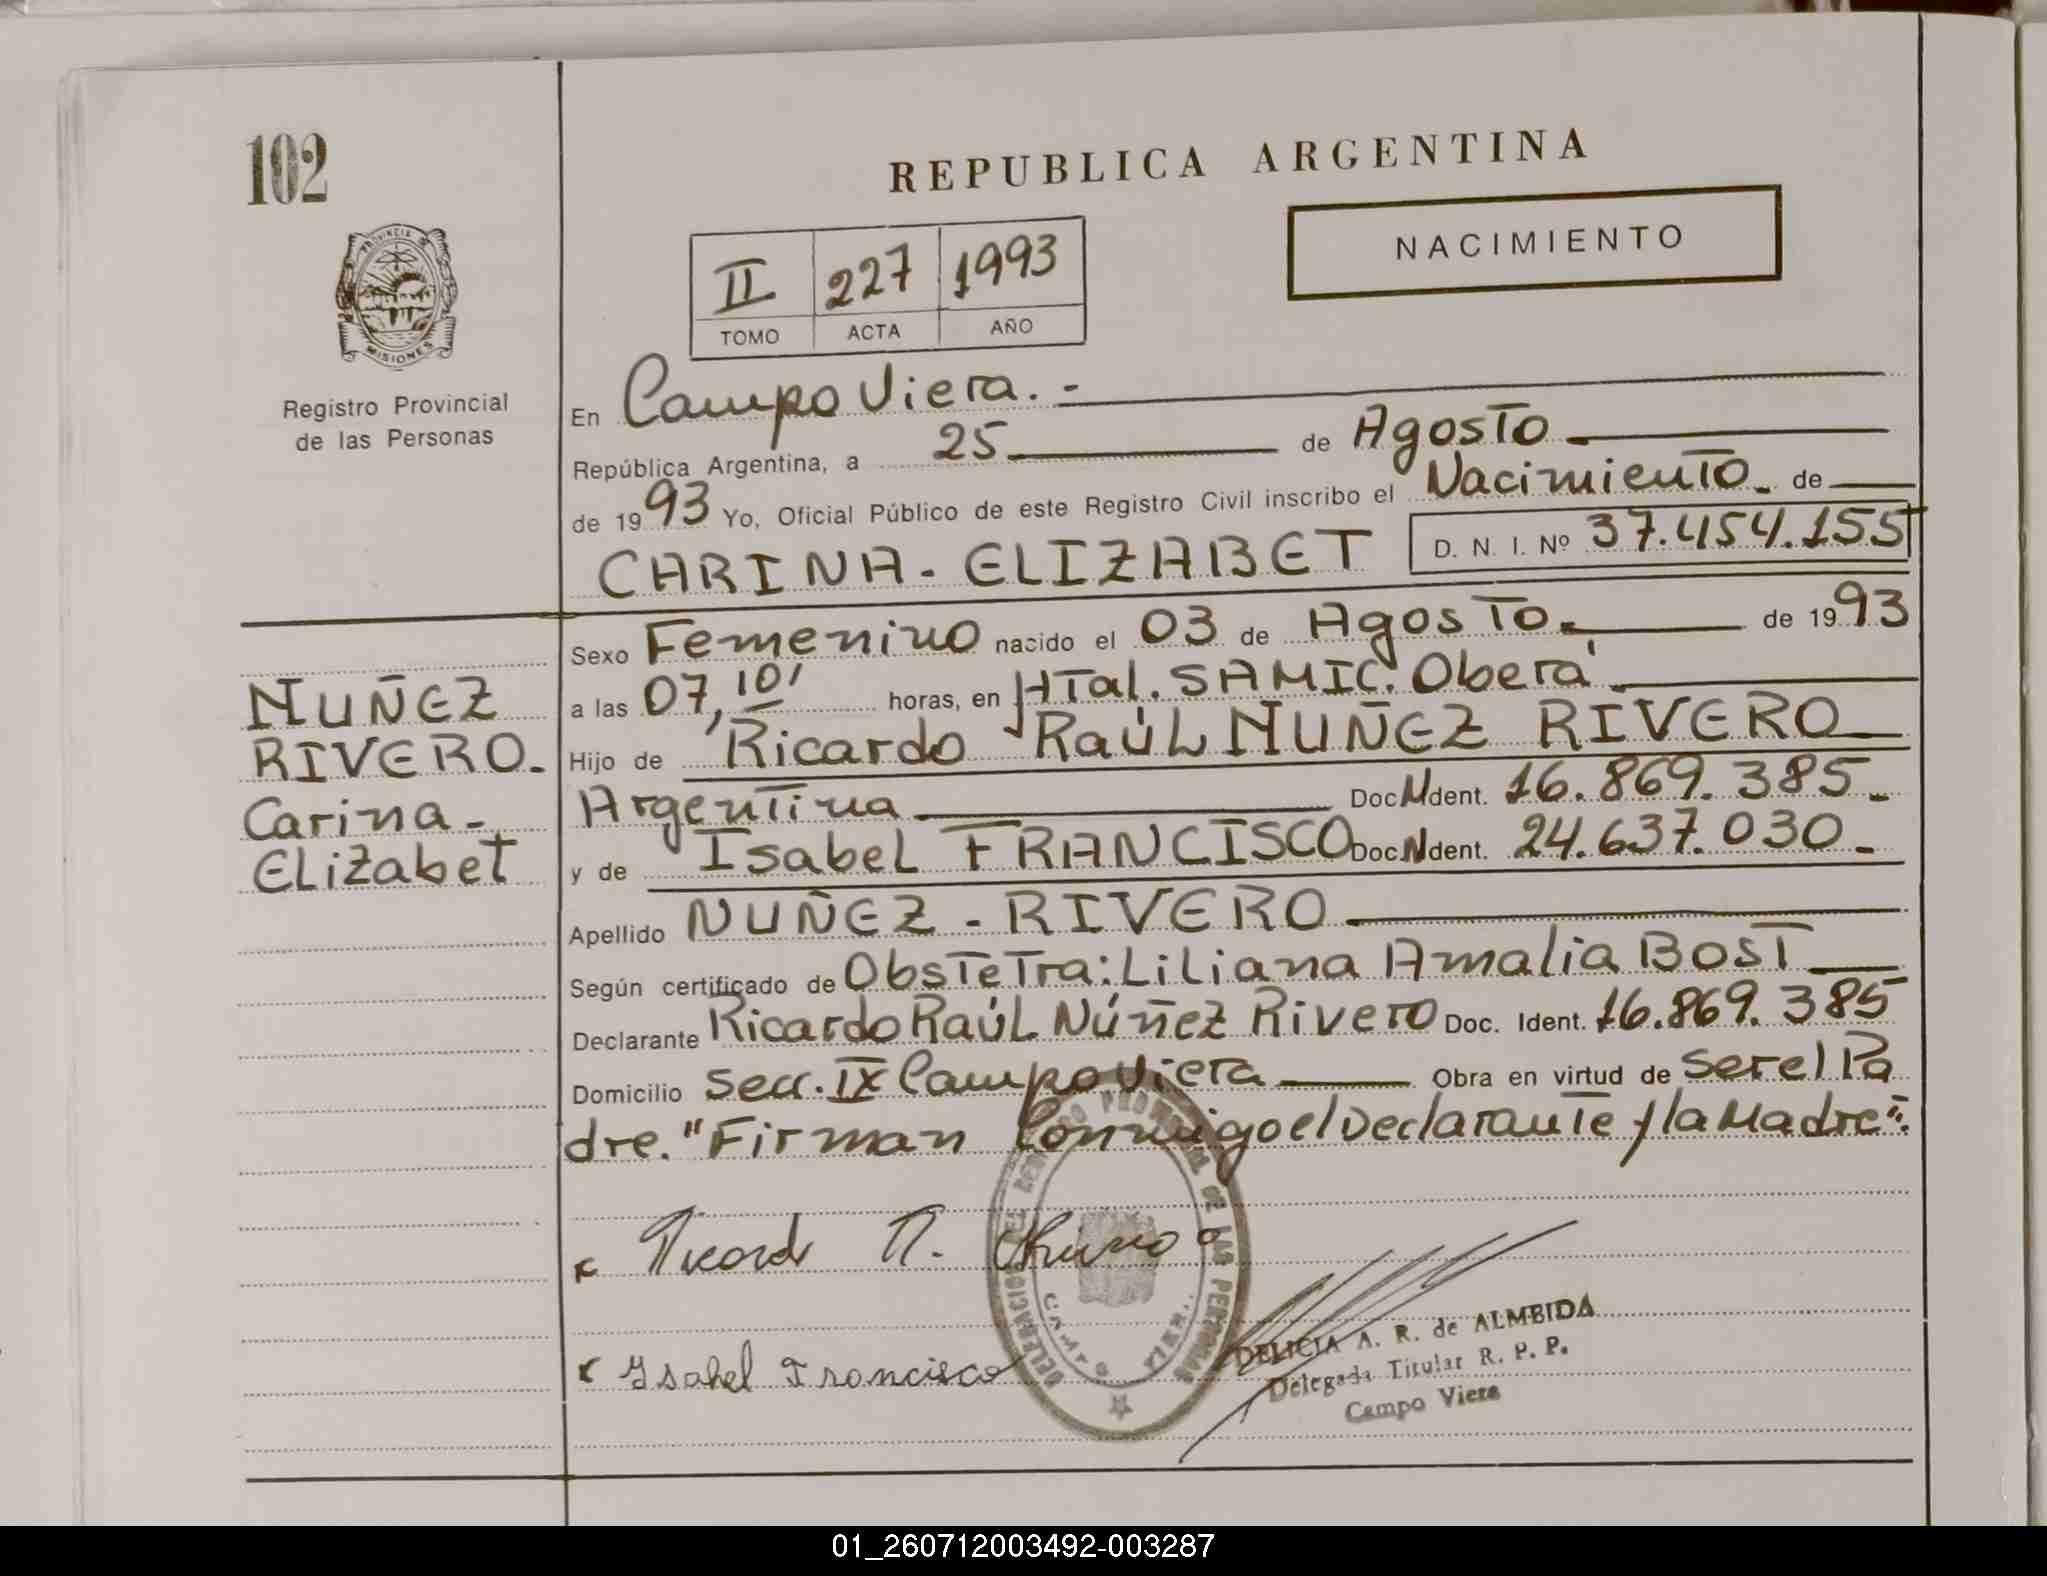 102
REPUBLICA ARGENTINA
NACIMIENTO
PROVINCIA
MISIONES
II 227 1993
TOMO ACTA AÑO
Registro Provincial
de las Personas
En Campo Viera.-
República Argentina, a 25 de Agosto
de 1993 Yo, Oficial Público de este Registro Civil inscribo el Nacimiento de
CARINA-ELIZABET D. N. I. Nº 37.454.155
Sexo Femenino nacido el 03 de Agosto de 1993
a las 07,10' horas, en HTal. SAMIC. Oberá
Hijo de Ricardo Raúl NUÑEZ RIVERO
Argentina Doc N Ident. 16.869.385-
y de Isabel FRANCISCO Doc N Ident. 24.637.030-
Apellido NUÑEZ-RIVERO
Según certificado de Obstetra: Liliana Amalia BOST
Declarante Ricardo Raúl Núñez Rivero Doc. Ident. 16.869.385
Domicilio Secc. IX Campo Viera Obra en virtud de ser el Pa
dre. "Firman Conmigo el Declarante y la Madre".
NUÑEZ
RIVERO-
Carina-
Elizabet
Isabel Francisco
DELEGACION REGISTRO PROVINCIAL DE LAS PERSONAS
CAMPO VIERA
DELICIA A. R. de ALMEIDA
Delegada Titular R. P. P.
Campo Viera
01_260712003492-003287